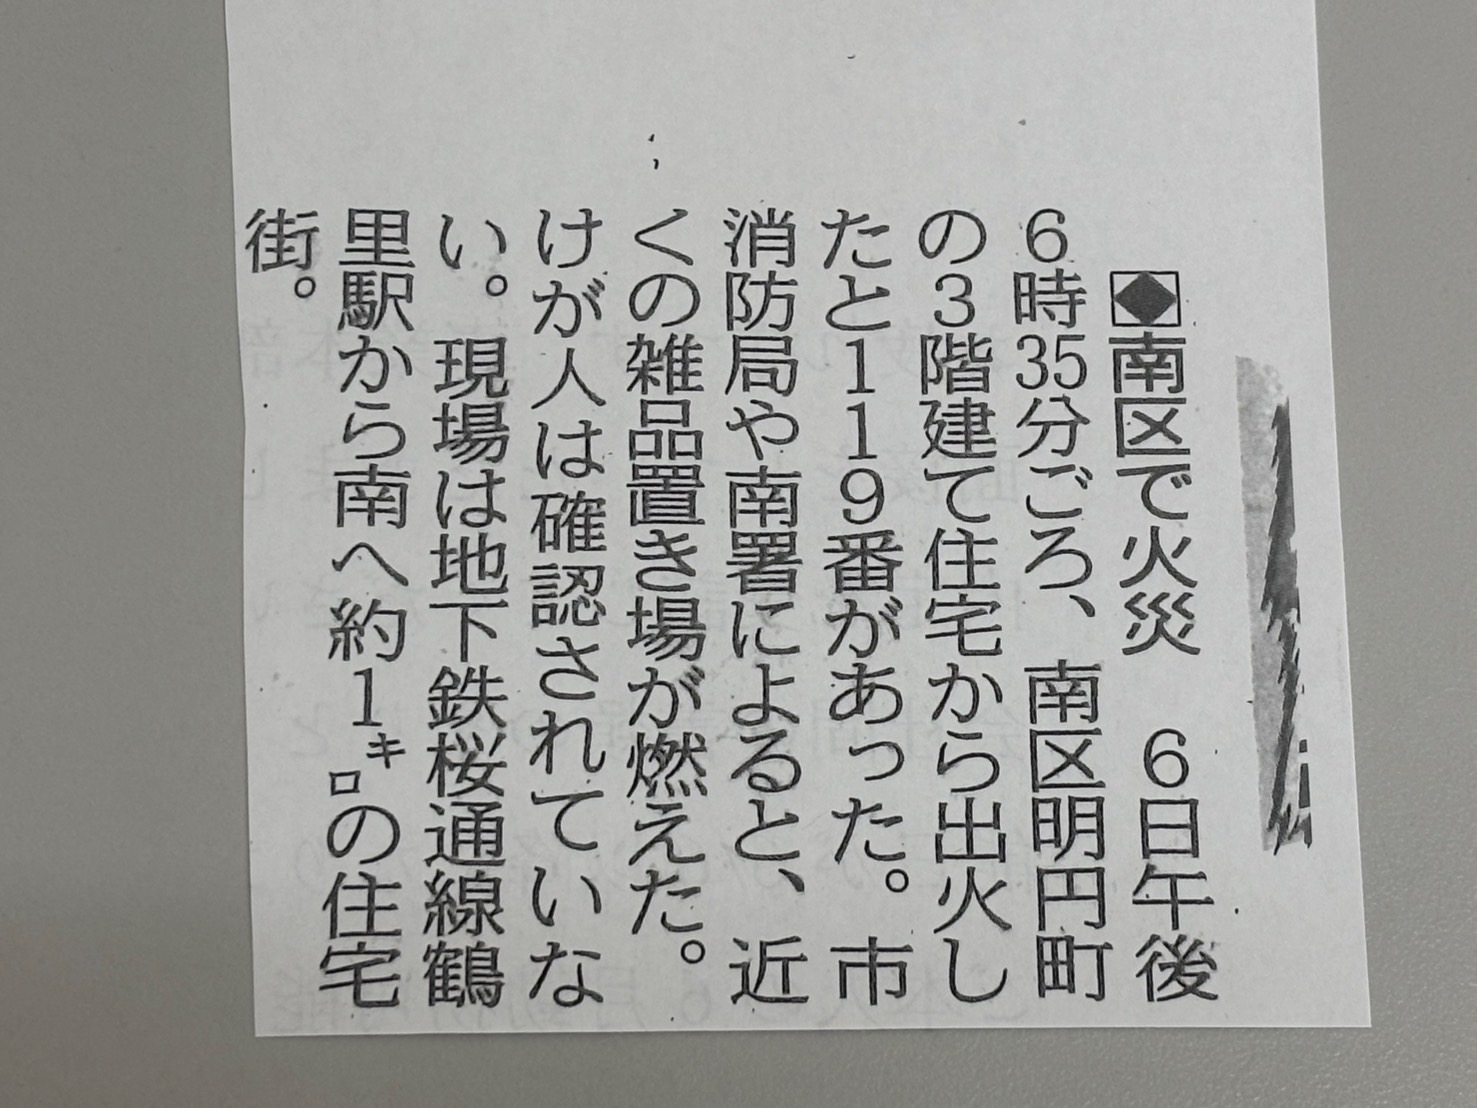 ◆南区で火災　6日午後
6時35分ごろ、南区明円町
の3階建て住宅から出火し
たと119番があった。市
消防局や南署によると、近
くの雑品置き場が燃えた。
けが人は確認されていな
い。現場は地下鉄桜通線鶴
里駅から南へ約1㌔の住宅
街。